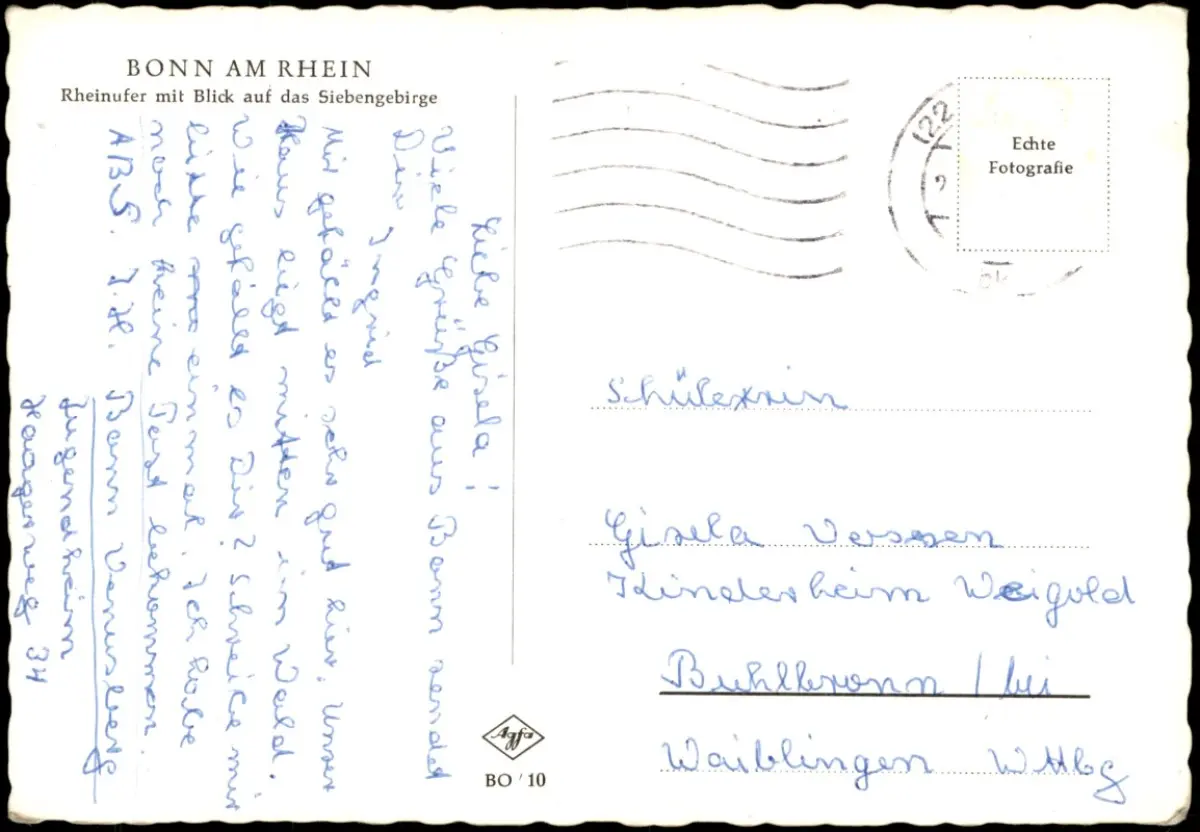 BONN AM RHEIN
Rheinufer mit Blick auf das Siebengebirge
Liebe Gisela!
Viele Grüße aus Bonn sendet
Dir Ingrid
Mir gefällt es sehr gut hier. Unser
Haus liegt mitten im Wald.
Wie gefällt es Dir? Schreibe mir
bitte einmal. Ich habe
noch keine Post bekommen.
ABS. I.H. Bonn Venusberg
Jugendheim
Haagerweg 34
Agfa
BO / 10
(22
Echte
Fotografie
Schülerin
Gisela
Kinderheim Weigold
Buhlbronn / bei
Waiblingen Wttbg